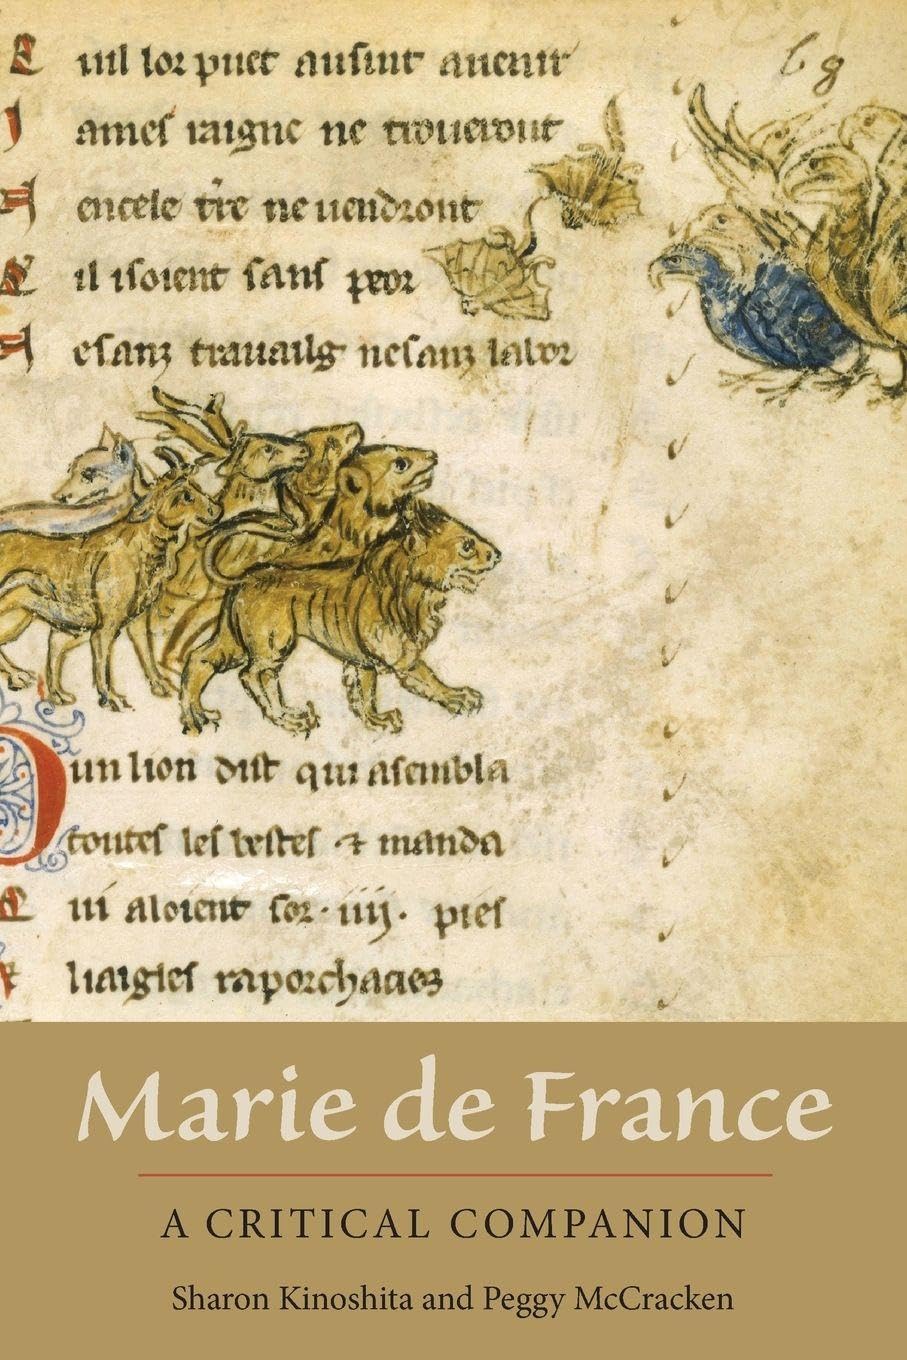 E uil lor puet ausint auenir
J ames iaigne ne troueront
A encele tr̄e ne uendront
E il isoient sans peor
A esanz trauailg nesanz labor
b g
D un lion dist qui asembla
toutes les bestes ⁊ manda
E ui aloient sor·iiij· pies
liaigles raporchacies
Marie de France
A CRITICAL COMPANION
Sharon Kinoshita and Peggy McCracken